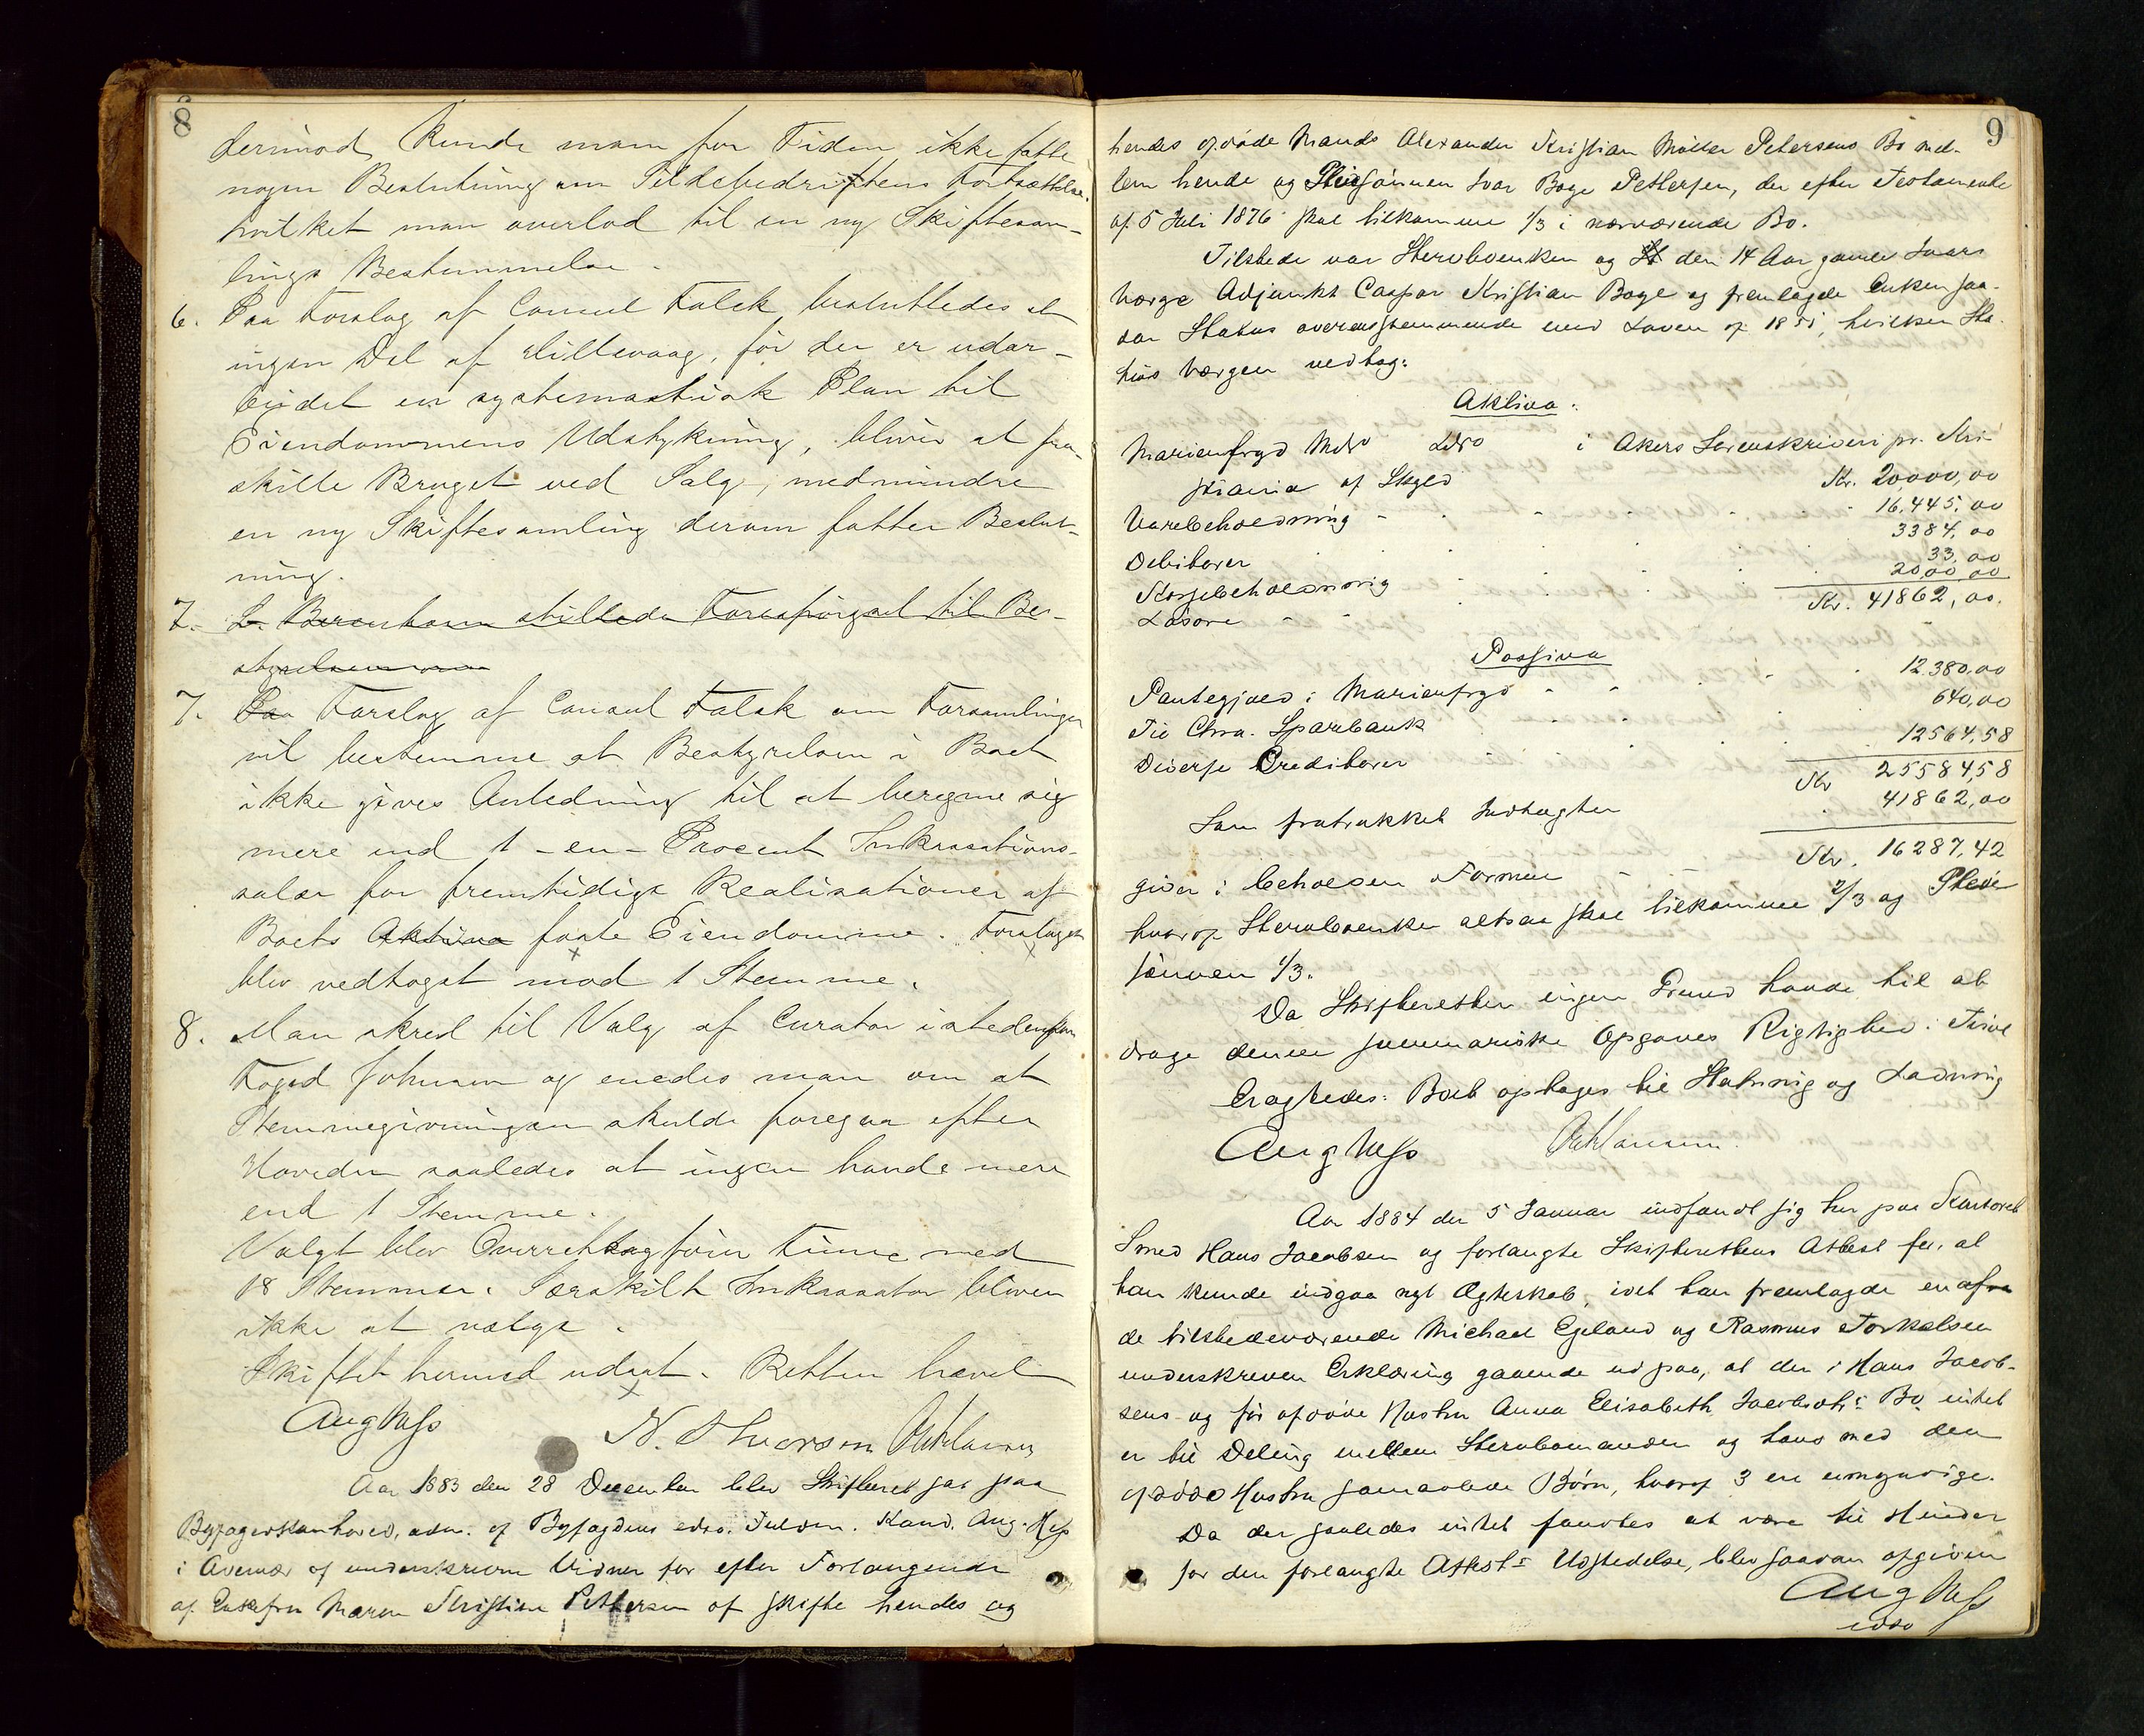 8
derimod kunde man for Tiden ikke fatte
nogen Beslutning om Sildebedriftens Fortsættelse,
hvilket man overlod til en ny Skiftesam-
lings Bestemmelse.
6. Paa Forslag af Consul Falck besluttedes at
ingen Del af Hillevaag, før der er udar-
beidet en systemastisk Plan til
Eiendommens Udstykning, bliver at fra-
skille Bruget ved Salg, medmindre
en ny Skiftesamling derom fatter Beslut-
ning.
7. L. Berentsen stillede Forespørgsel til Be-
styrelsen om
7. Paa Forslag af Consul Falck om Forsamlingen
vil bestemme at Bestyrelsen i Boet
ikke gives Anledning til at beregne sig
mere end 1 - en - Procent Inkassations-
salær for fremtidige Realisationer af
Boets Aktiva faste Eiendomme. Forslaget
blev vedtaget mod 1 Stemme.
8. Man skred til Valg af Curator istedenfor
Foged Johnsen og enedes man om at
Stemmegivningen skulde foregaa efter
Hoveder saaledes at ingen havde mere
end 1 Stemme.
Valgt blev Overretssagfører Finne med
18 Stemmer. Særskilt Inkassator bliver
ikke at vælge.
Skiftet hermed udsat. Retten hævet
Aug Hess
Aar 1883 den 28 December blev Skifteret sat paa
Byfogedkontoret, adm. af Byfogdens edsv. Fuldm. Kand. Aug. Hess
i Overvær af underskrevne Vidner for efter Forlangende
af Enkefru Maren Kristine Pettersen at skifte hendes og
9
hendes afdøde Mands Alexander Kristian Møller Petersens Bo mel-
lem hende og Pleiesønnen Ivar Boye Pettersen, der efter Testamente
af 5 Juli 1876 skal tilkomme 1/3 i nærværende Bo.
Tilstede var Stervboenken og St den 14 Aar gamle Ivars
Værge Adjunkt Caspar Kristian Boye og fremlagde Enken saa-
dan Status overensstemmende med Loven af 1851, hvilken Sta-
tus Værgen vedtog:
Aktiva:
Marienfryd Mdvo Ldvo i Akers Sorenskriveri pr. Kri-
stiania af Skyld Kr. 20,000,00
Varebeholdning - 16,445,00
Debitorer 3384,00
Kassebeholdning 33,00
Løsøre - 2000,00
Kr. 41862,00.
Passiva
Pantegjæld i Marienfryd - - 12.380,00
Til Chra. Sparebank 640,00
Diverse Creditorer 12564,58
Kr 25584,58
Som fratrukket Indtægter 41862,00
giver i beholden Formue Kr. 16287,42
hvoraf Stervboenken altsaa skal tilkomme 2/3 og Pleie
sønnen 1/3.
Da Skifteretten ingen Grund havde til at
drage denne summariske Opgaves Rigtighed i Tvivl
Eragtedes: Boet optages til Slutning og Lodning
Aug Hess
Aar 1884 den 5 Januar indfandt sig her paa Kontoret
Smed Hans Jacobsen og forlangte Skifterettens Attest for, at
han kunde indgaa nyt Ægteskab, idet han fremlagde en af
de tilstedeværende Michael Egeland og Rasmus Torkelsen
underskreven Erklæring gaaende ud paa, at der i Hans Jacob-
sens og før afdøde Hustru Anna Elisabeth Jacobsdtr Bo intet
er til Deling mellem Stervbomanden og hans med den
afdøde Hustru samavlede Børn, hvoraf 3 ere umyndige.
Da der saaledes intet fandtes at være til Hinder
for den forlangte Attests Udstedelse, blev saadan afgiven
Aug Hess
edsv